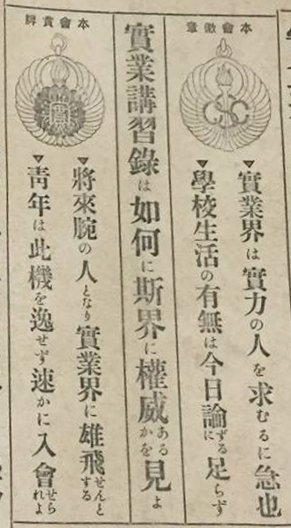 本會徽章
▼實業界は實力の人を求むるに急也
▼學校生活の有無は今日論ずるに足らず
實業講習錄は如何に斯界に權威あるかを見よ
本會賞牌
▼將來腕の人となり實業界に雄飛せんとする
▼靑年は此機を逸せず速かに入會せられよ